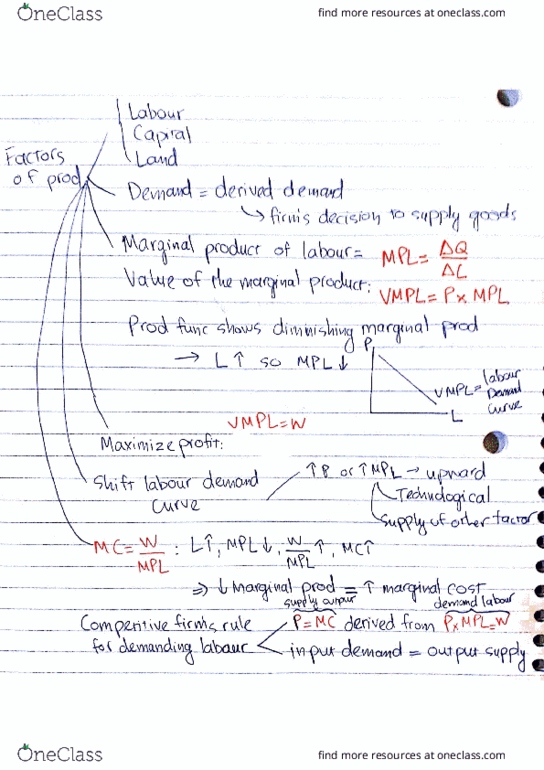 OneClass
find more resources at oneclass.com
Labour
Capital
Land
Factors
of prod
Demand = derived demand
↳ firm's decision to supply goods
Marginal product of labour = MPL = ΔQ/ΔL
Value of the marginal product: VMPL = P x MPL
Prod func shows diminishing marginal prod
→ L↑ so MPL↓
P
VMPL = labour Demand curve
L
VMPL = W
Maximize profit:
Shift labour demand curve
↑P or ↑MPL → upward
Technological
Supply of other factor
MC = W/MPL : L↑, MPL↓, W/MPL ↑, MC↑
⇒ ↓ Marginal prod = ↑ marginal cost
supply output
demand labour
Competitive firm's rule
for demanding labour
P = MC derived from P x MPL = W
input demand = output supply
OneClass
find more resources at oneclass.com